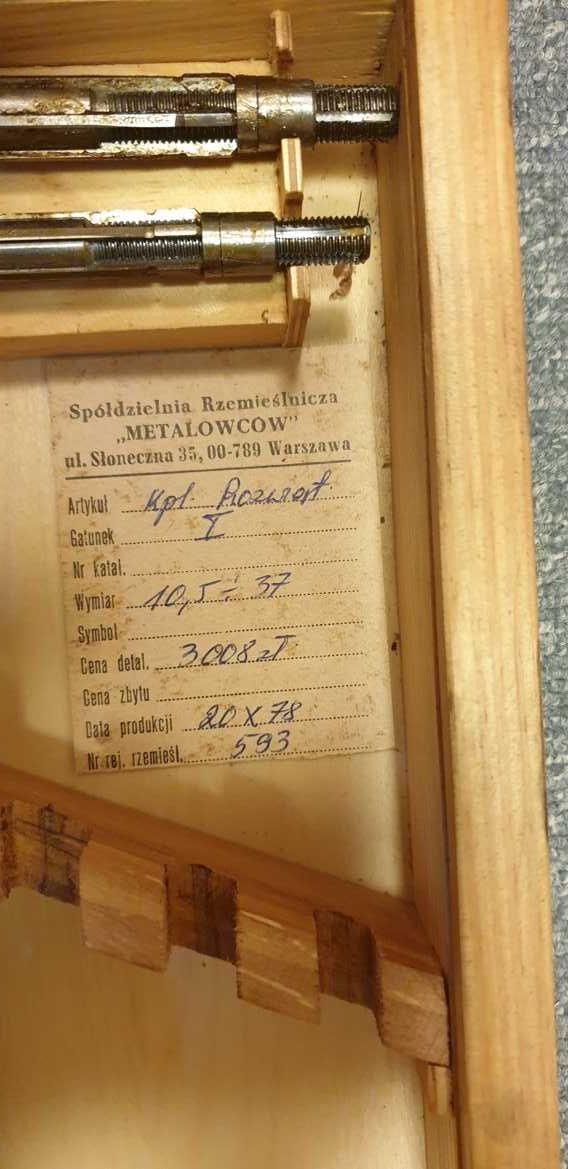 Spółdzielnia Rzemieślnicza
„METALOWCOW”
ul. Słoneczna 35, 00-789 Warszawa
Artykuł Kpl Rozwiert
Gatunek I
Nr katal.
Wymiar 10,5÷37
Symbol
Cena detal. 3008 zł
Cena zbytu
Data produkcji 20 X 78
Nr rej. rzemieśl. 593